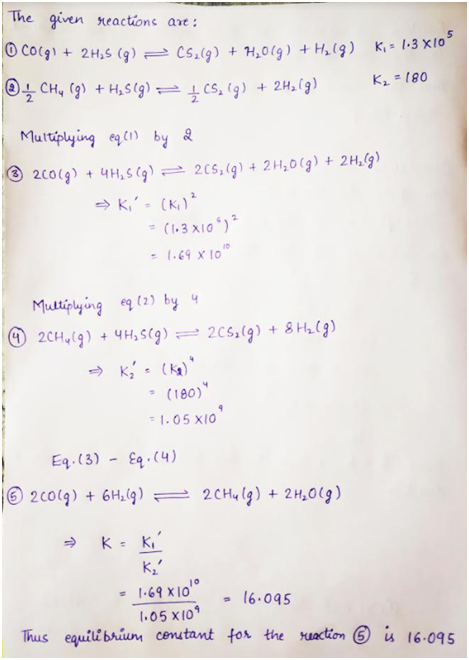 The given reactions are:
① CO(g) + 2H₂S (g) ⇌ CS₂(g) + H₂O(g) + H₂(g) K₁ = 1.3 × 10⁵
② 1/2 CH₄ (g) + H₂S(g) ⇌ 1/2 CS₂ (g) + 2H₂(g) K₂ = 180
Multiplying eq(1) by 2
③ 2CO(g) + 4H₂S(g) ⇌ 2CS₂(g) + 2H₂O(g) + 2H₂(g)
⇒ K₁' = (K₁)²
= (1.3 × 10⁵)²
= 1.69 × 10¹⁰
Multiplying eq (2) by 4
④ 2CH₄(g) + 4H₂S(g) ⇌ 2CS₂(g) + 8H₂(g)
⇒ K₂' = (K₂)⁴
= (180)⁴
= 1.05 × 10⁹
Eq.(3) - Eq.(4)
⑤ 2CO(g) + 6H₂(g) ⇌ 2CH₄(g) + 2H₂O(g)
⇒ K = K₁'
K₂'
= 1.69 × 10¹⁰ = 16.095
1.05 × 10⁹
Thus equilibrium constant for the reaction ⑤ is 16.095